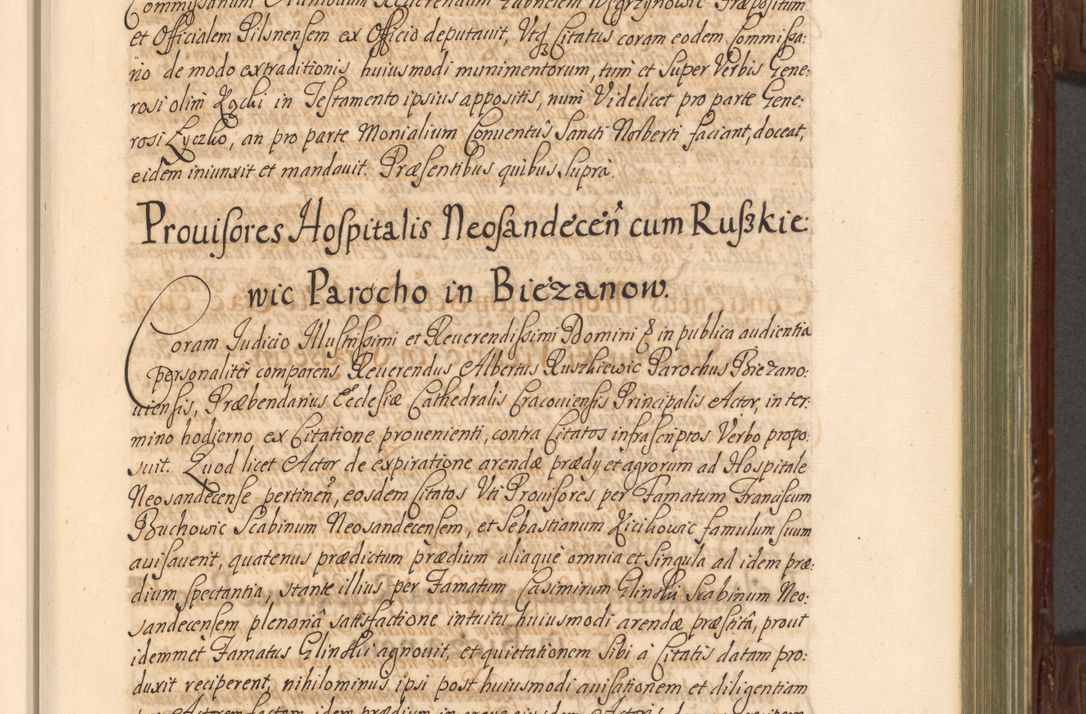 Commissarium Admodum Reuerendum Gabrielem Węgrzynowic Præpositum
et Officialem Pilsnensem ex Officio deputauit, Vtq3 Citatus coram eodem Commissa:
rio de modo extraditionis huiusmodi munimentorum, tum et super Verbis Gene:
rosi olim Rocki in Testamento ipsius appositis, num Videlicet pro parte Gene:
rosi Łyczko, an pro parte Monialium Conuentûs Sancti Norberti faciant, doceat,
eidem iniunxit et mandauit. Præsentibus quibus supra.
Prouisores Hospitalis Neosandeceñ cum Ruszkie:
wic Parocho in Bieżanow.
Coram Iudicio Illustrissimi et Reuerendissimi Domini & in publica audientia
personaliter comparens Reuerendus Albertus Ruszkiewic Parochus Bieżano:
uiensis, Præbendarius Ecclesiæ Cathedralis Cracouiensis Principalis Actor, in ter:
mino hodierno ex Citatione prouenienti, contra Citatos infrascriptos Verbo propo:
suit. Quod licet Actor de expiratione arendæ prædy et agrorum ad Hospitale
Neosandecense pertineñ, eosdem Citatos Vti Prouisores per Famatum Franciscum
Buchowic Scabinum Neosandecensem, et Sebastianum Kicikowic famulum suum
auisauerit, quatenus prædictum prædium aliaque omnia et singula ad idem præ:
dium spectantia, stante illius per Famatum Casimirum Glinski Scabinum Neo:
sandecensem plenariâ satisfactione intuitu huiusmodi arendæ præstitâ, prout
idemmet Famatus Glinski agnouit, et quietationem sibi à Citatis datam pro:
duxit reciperent, nihilominus ipsi post huiusmodi auisationem et diligentiam